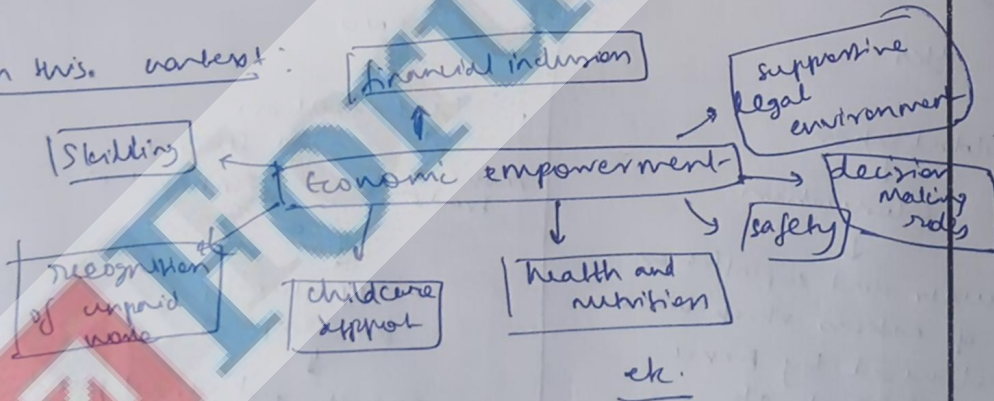 n this. context:
financial inclusion
supportive
legal
environment
Skilling
Economic empowerment
decision
making
roles
safety
recognition
of unpaid
work
childcare
support
health and
nutrition
etc.
FORU